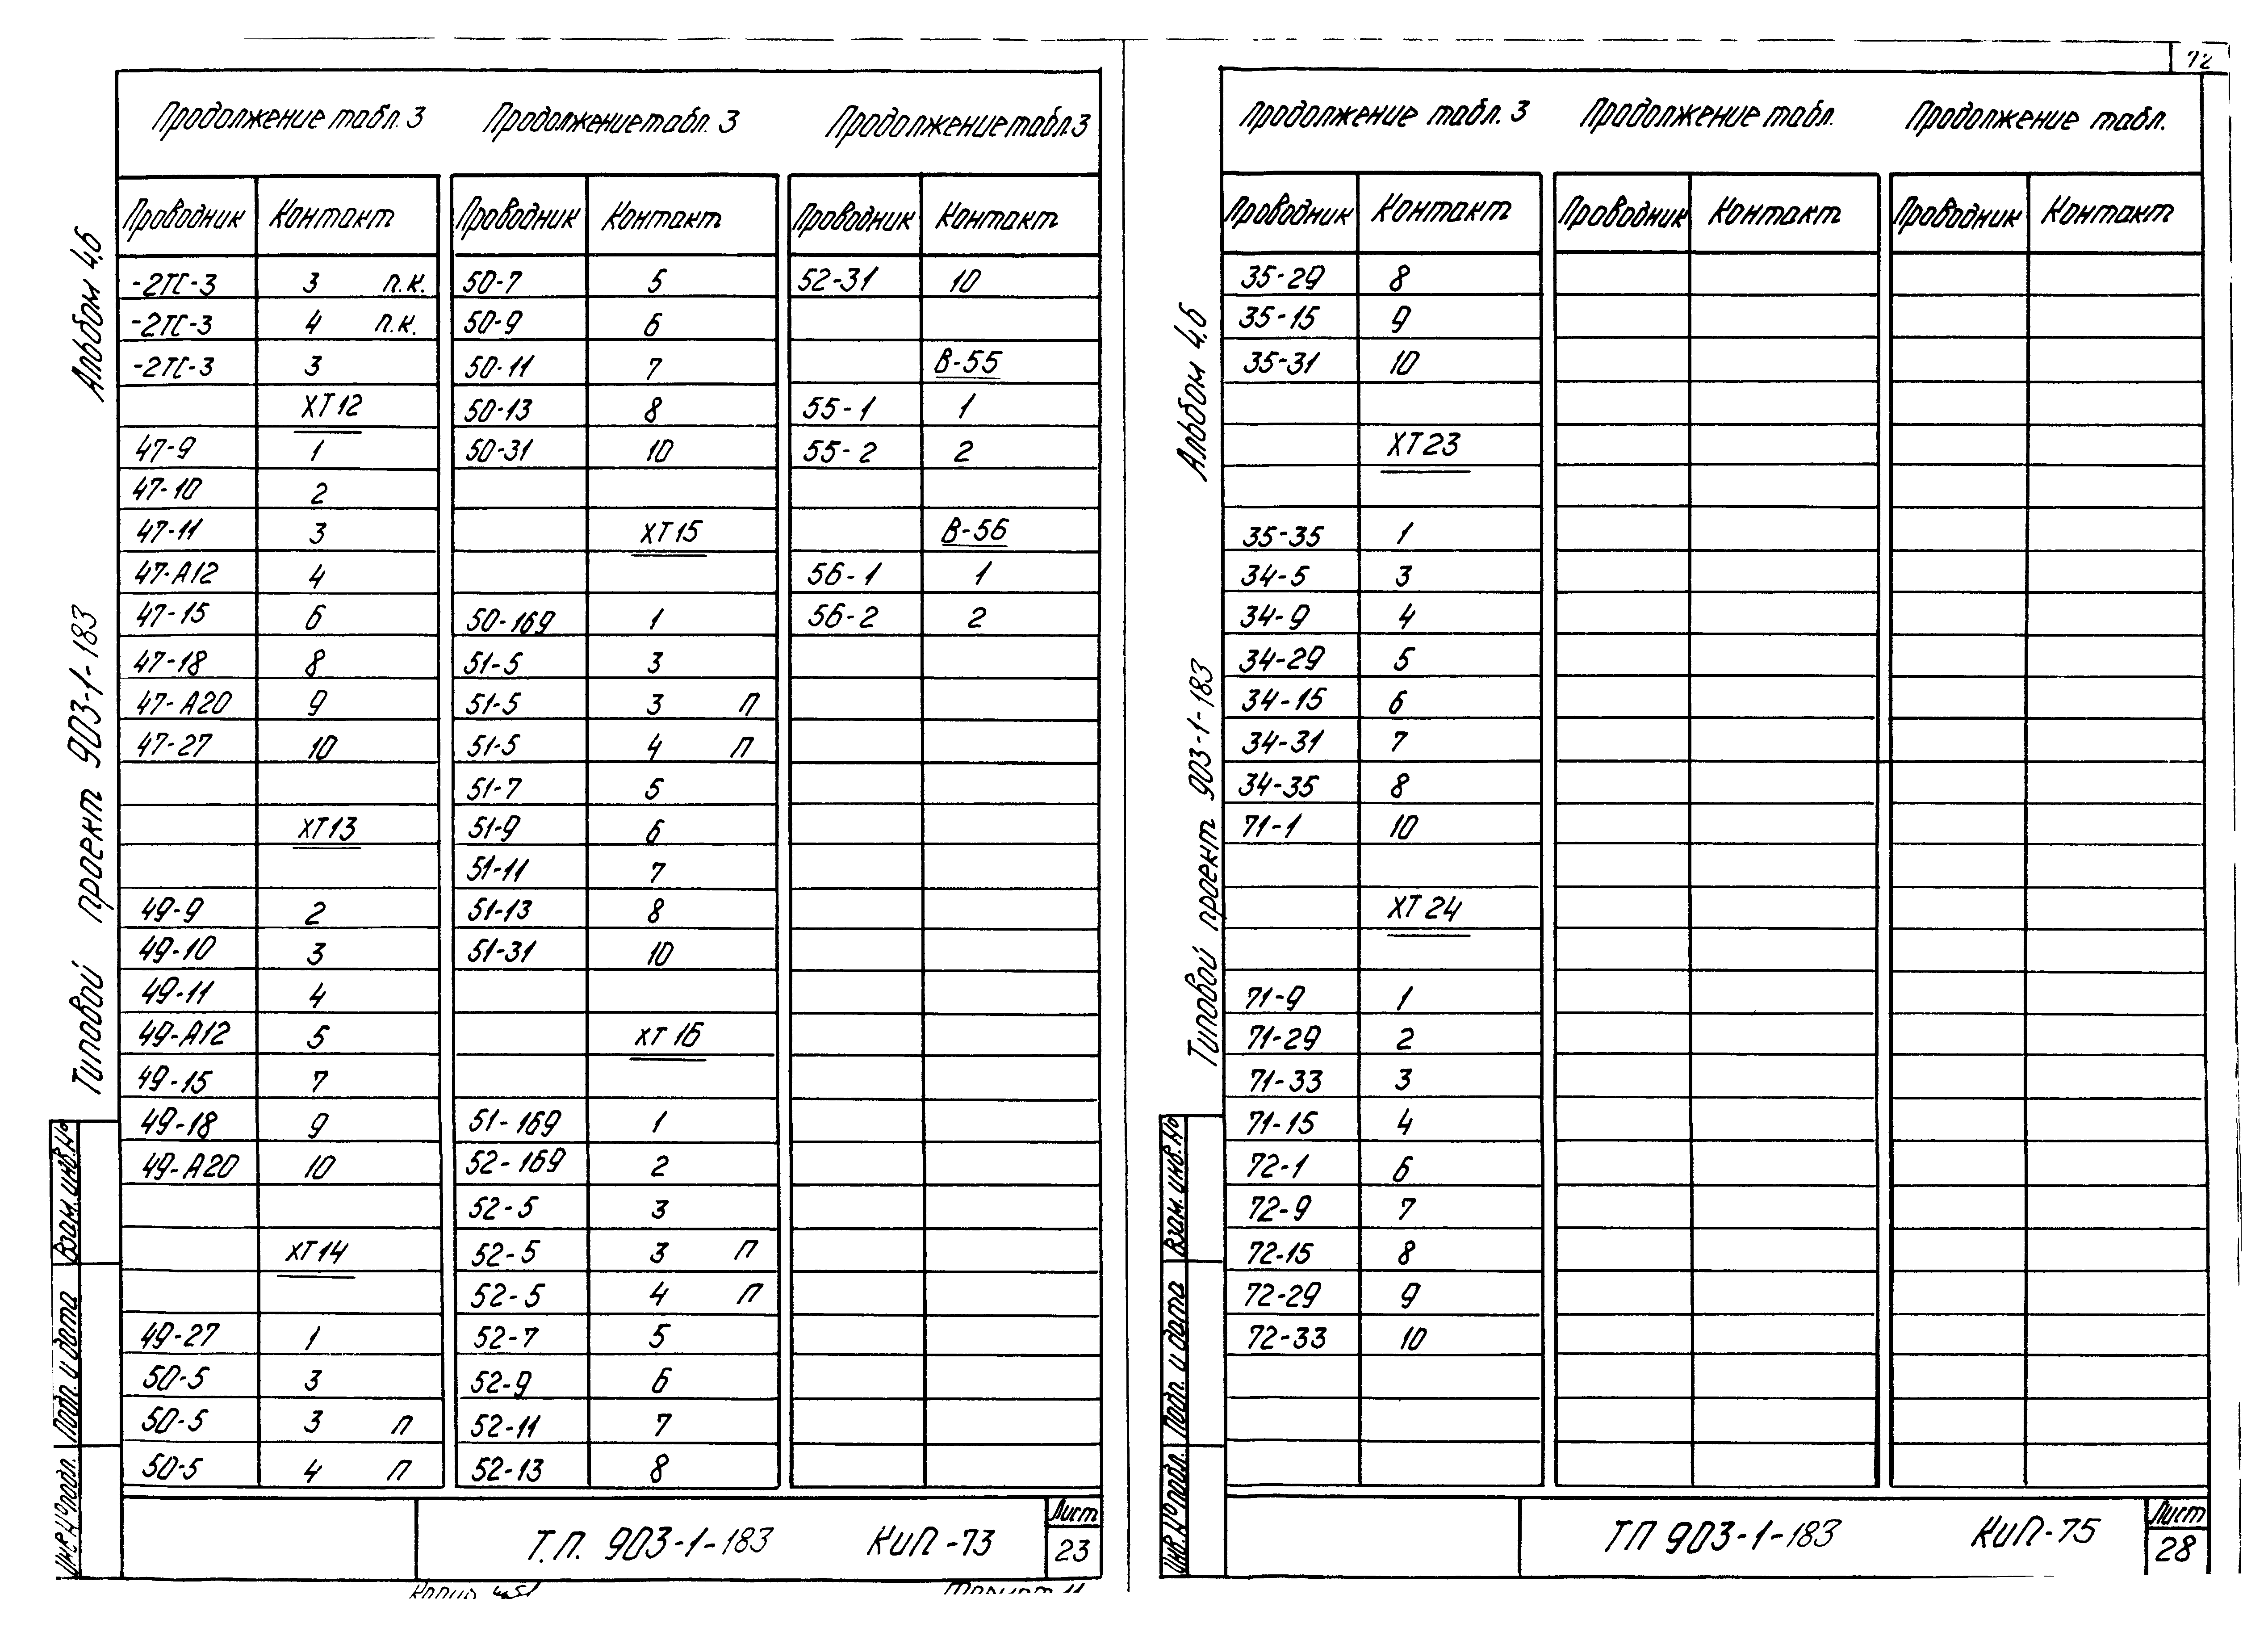 72
Продолжение табл. 3 Продолжение табл. 3 Продолжение табл. 3
Проводник Контакт Проводник Контакт Проводник Контакт
-2ТС-3 3 п.к. 50-7 5 52-31 10
-2ТС-3 4 п.к. 50-9 6
-2ТС-3 3 50-11 7 В-55
ХТ12 50-13 8 55-1 1
47-9 1 50-31 10 55-2 2
47-10 2
47-11 3 ХТ15 В-56
47-А12 4 56-1 1
47-15 6 50-169 1 56-2 2
47-18 8 51-5 3
47-А20 9 51-5 3 П
47-27 10 51-5 4 П
51-7 5
ХТ13 51-9 6
51-11 7
49-9 2 51-13 8
49-10 3 51-31 10
49-11 4
49-А12 5 ХТ16
49-15 7
49-18 9 51-169 1
49-А20 10 52-169 2
52-5 3
ХТ14 52-5 3 П
52-5 4 П
49-27 1 52-7 5
50-5 3 52-9 6
50-5 3 П 52-11 7
50-5 4 П 52-13 8
Альбом 4.6
Типовой проект 903-1-183
Взам. инв. №
Подп. и дата
Инв. № подл.
Т.П. 903-1-183 КИП-73 Лист
23
Формат 11
Продолжение табл. 3 Продолжение табл. Продолжение табл.
Проводник Контакт Проводник Контакт Проводник Контакт
35-29 8
35-15 9
35-31 10
ХТ23
35-35 1
34-5 3
34-9 4
34-29 5
34-15 6
34-31 7
34-35 8
71-1 10
ХТ24
71-9 1
71-29 2
71-33 3
71-15 4
72-1 6
72-9 7
72-15 8
72-29 9
72-33 10
Альбом 4.6
Типовой проект 903-1-183
Взам. инв. №
Подп. и дата
Инв. № подл.
ТП 903-1-183 КИП-75 Лист
28